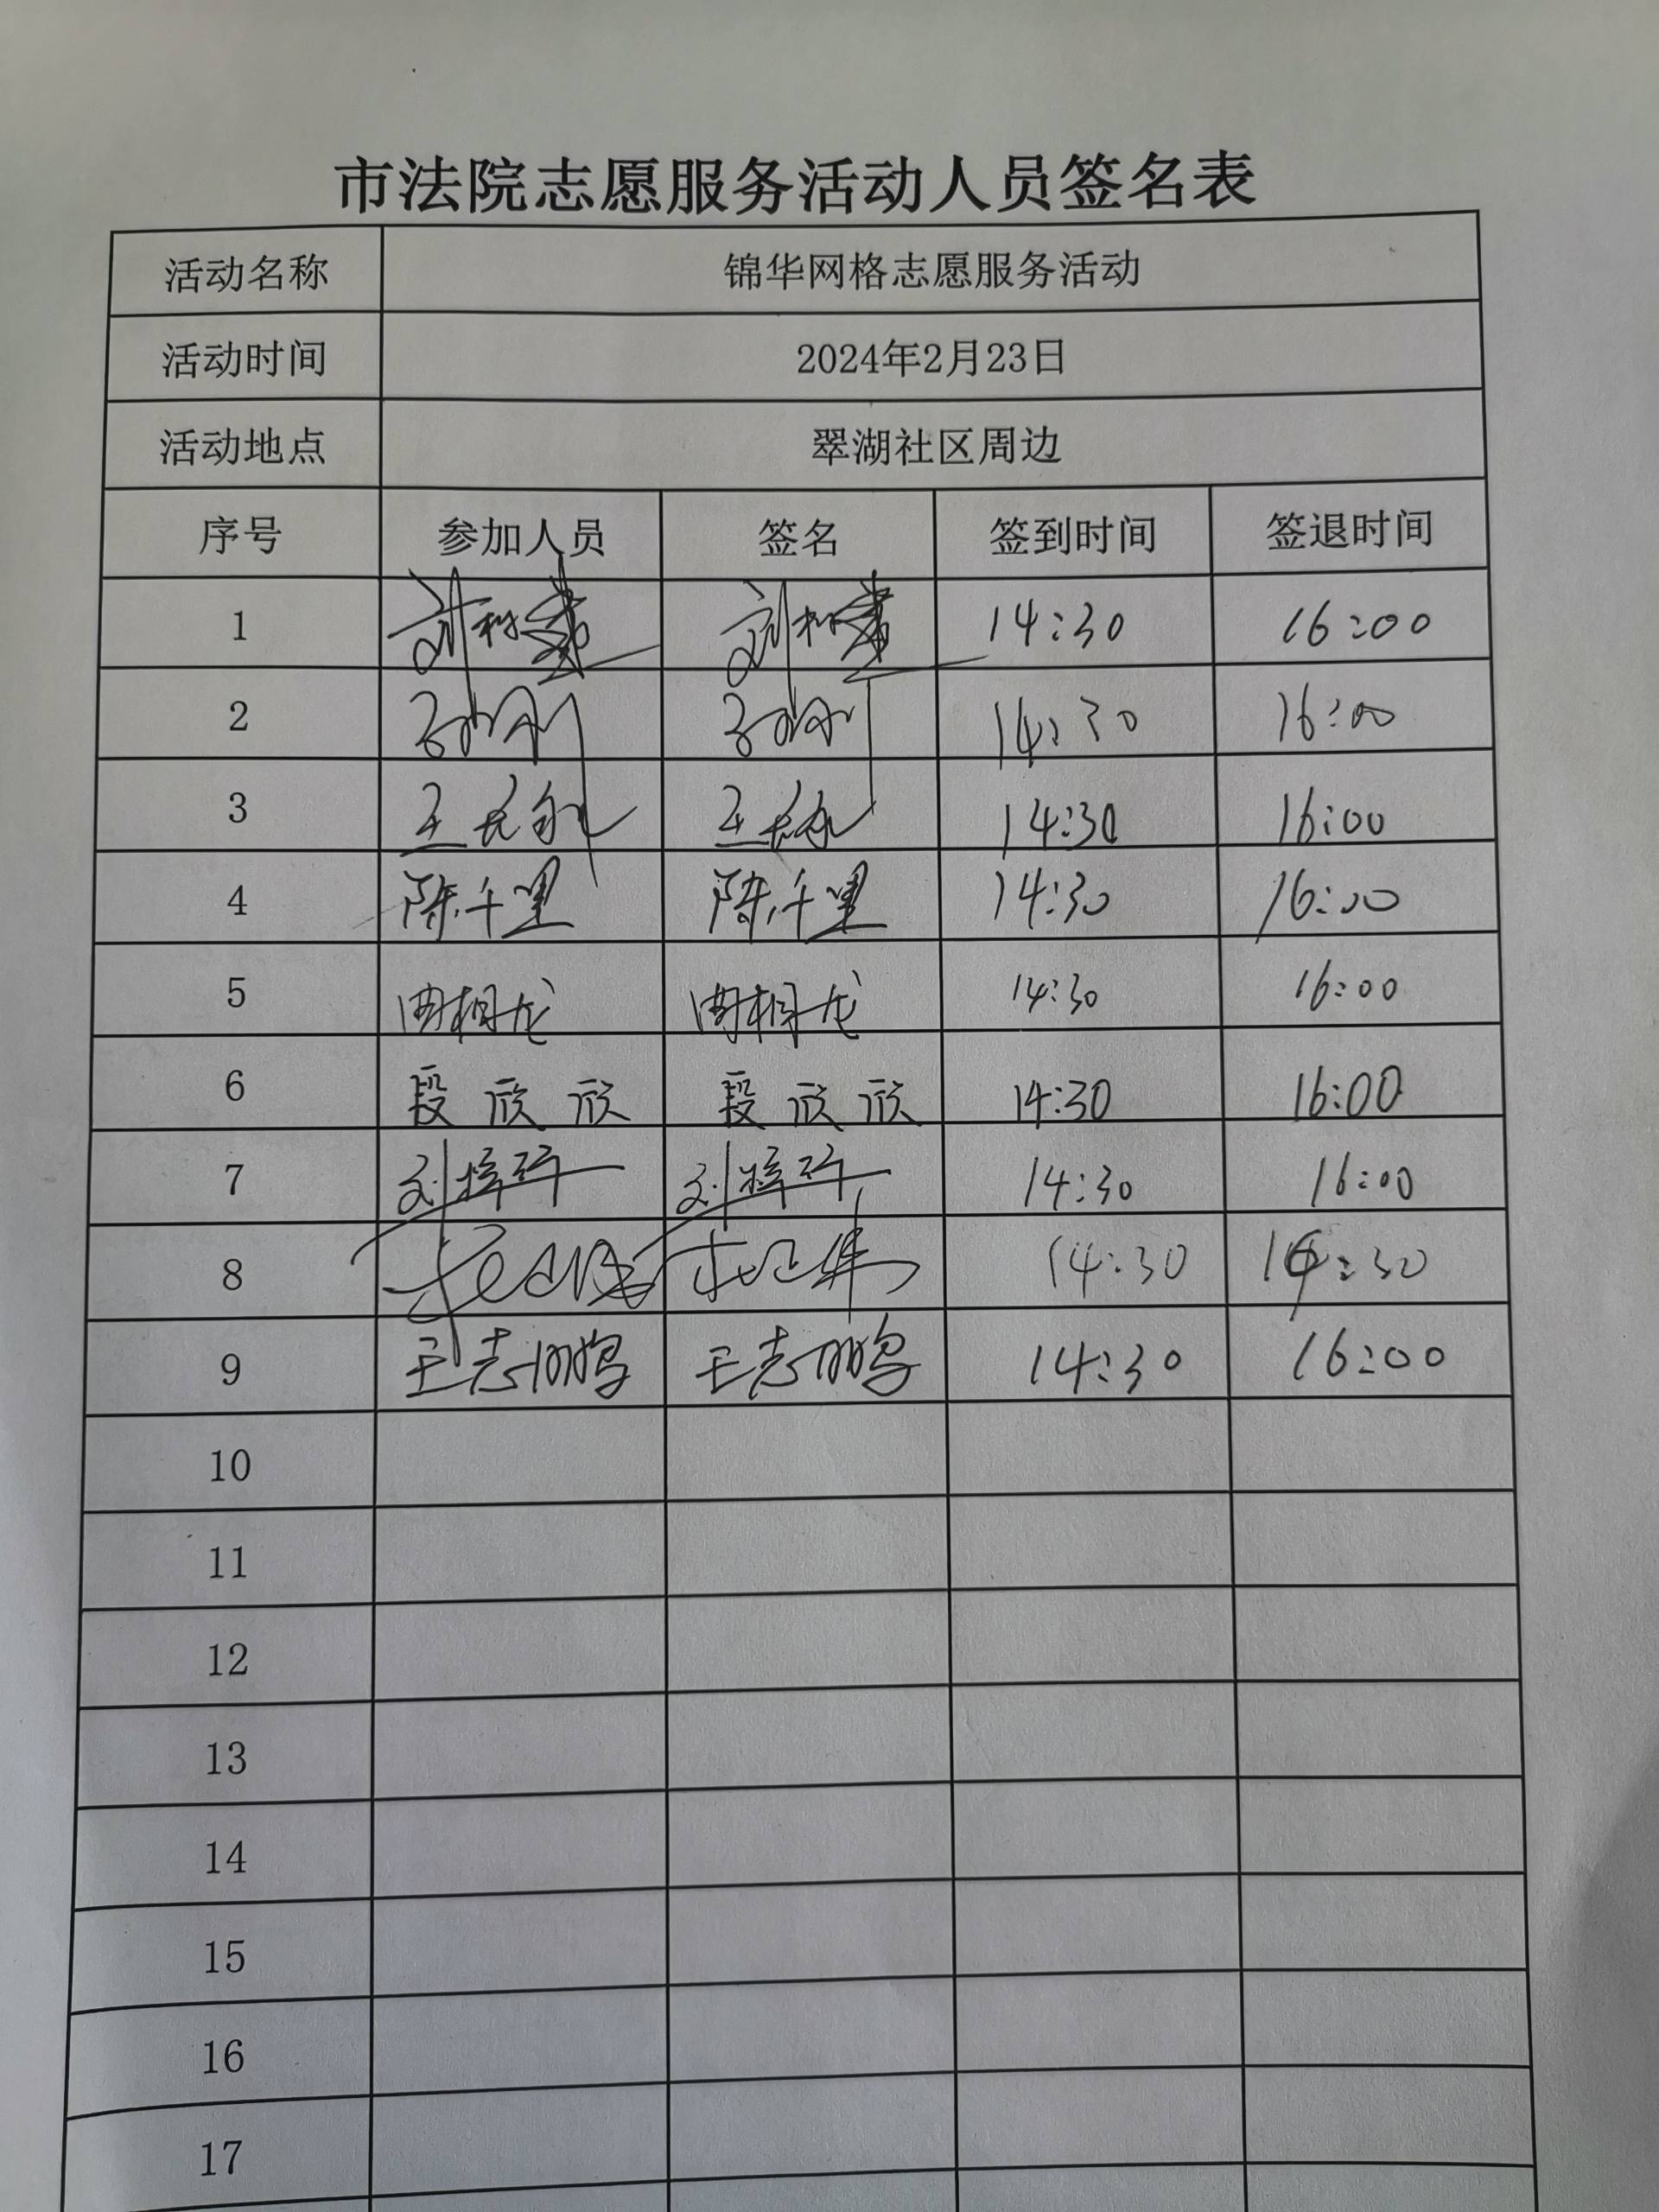 市法院志愿服务活动人员签名表
活动名称 锦华网格志愿服务活动
活动时间 2024年2月23日
活动地点 翠湖社区周边
序号 参加人员 签名 签到时间 签退时间
1 14:30 16:00
2 14:30 16:00
3 14:30 16:00
4 陈千里 陈千里 14:30 16:00
5 曲相龙 曲相龙 14:30 16:00
6 段欣欣 段欣欣 14:30 16:00
7 14:30 16:00
8 14:30
9 王志鹏 王志鹏 14:30 16:00
10
11
12
13
14
15
16
17